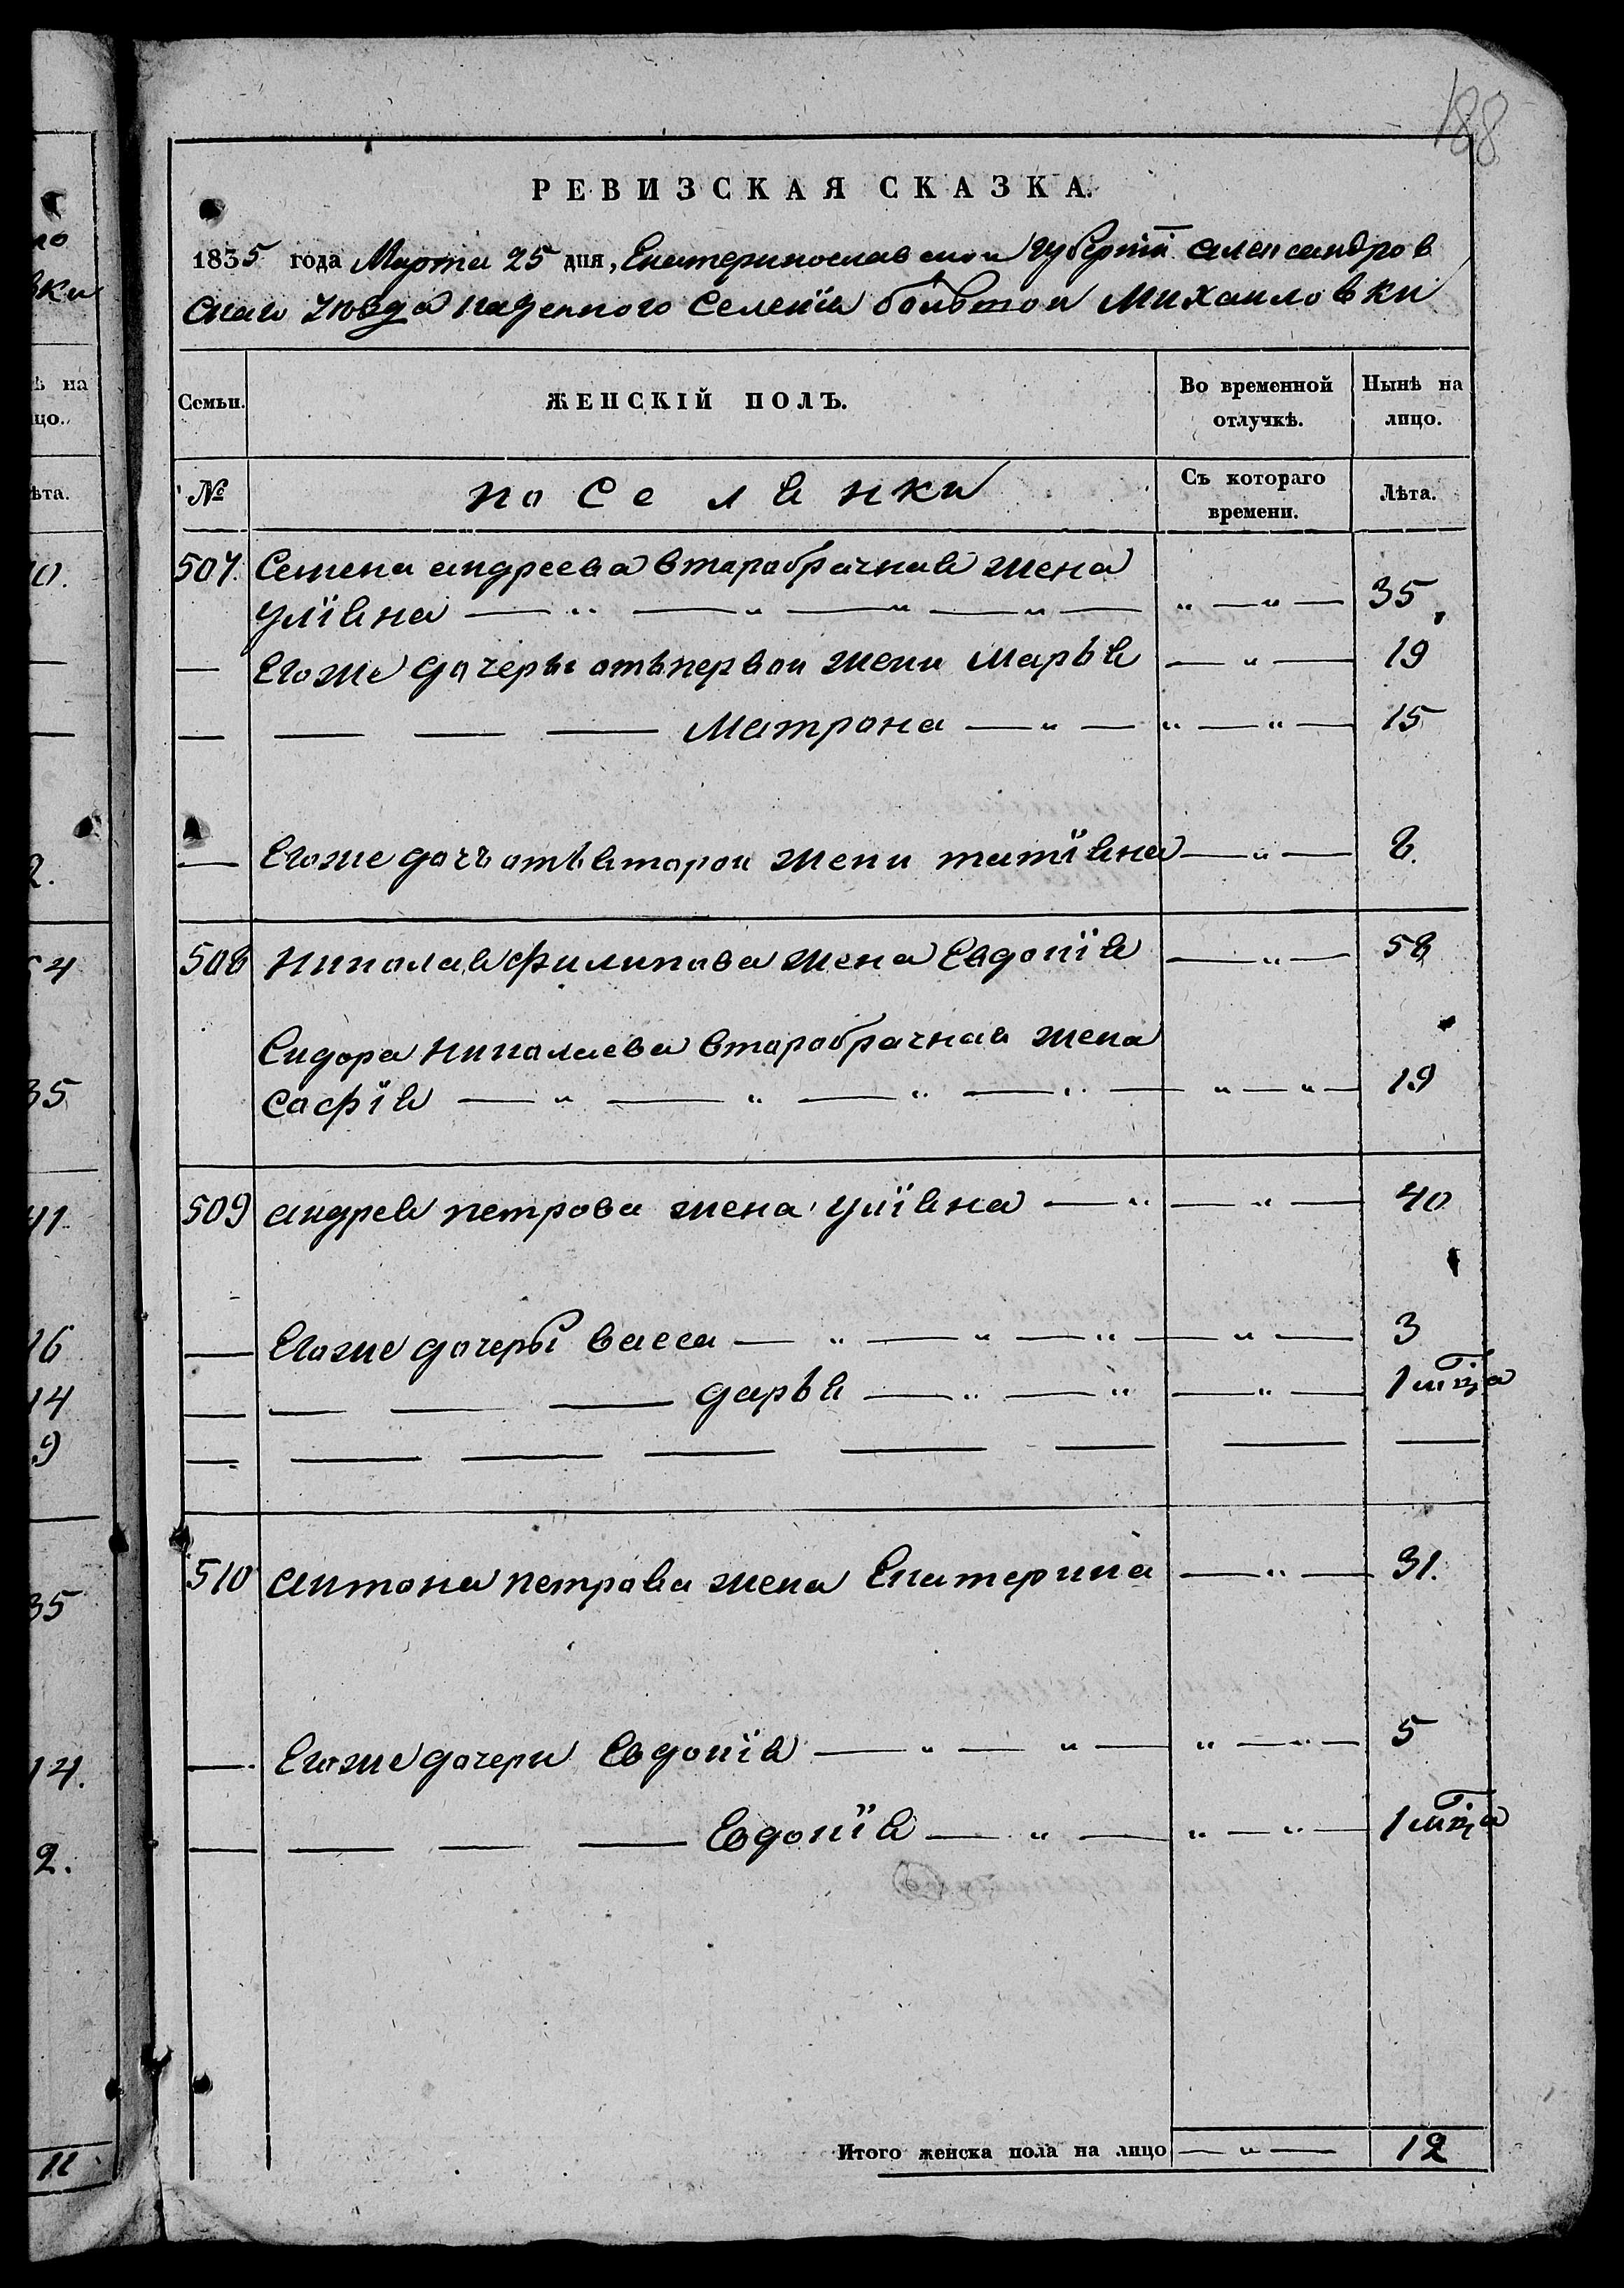 188
РЕВИЗСКАЯ СКАЗКА.
1835 года Марта 25 дня, Екатеринославской губерніи Александров
скаго уѣзда казенного селенія большой Михаиловки
Семьи. ЖЕНСКІЙ ПОЛЪ. Во временной отлучкѣ. Нынѣ на лицо.
№ поселянки Съ котораго времени. Лѣта.
507. Семена андреева второбрачная жена
Уліяна — „ — „ — „ — „ — „ — „ — 35
— Егоже дочеры отъ первои жени Марья — „ — 19
— — — — Матрона — „ — „ — „ — 15
— Егоже дочъ отъ второи жени татіяна — „ — 8.
508 Николая филипова жена Евдокія — „ — 58
Сидора николаева второбрачная жена
Софія — „ — „ — „ — „ — „ — „ — 19
509 андрея петрова жена уліяна — „ — „ — 40
— Егоже дочеры васса — „ — „ — „ — „ — 3
— — — — дарья — „ — „ — „ — 1 мца
— — — — — — — —
510 антона петрова жена Екатерина — „ — 31.
— Егоже дочери Евдокія — „ — „ — „ — „ — 5
— — — — Евдокія — „ — „ — „ — 1 мца
Итого женска пола на лицо — „ — 12
ки
ѣ на
цо.
ѣта.
0.
2.
54
35
41
16
14
9
35
14.
2.
11